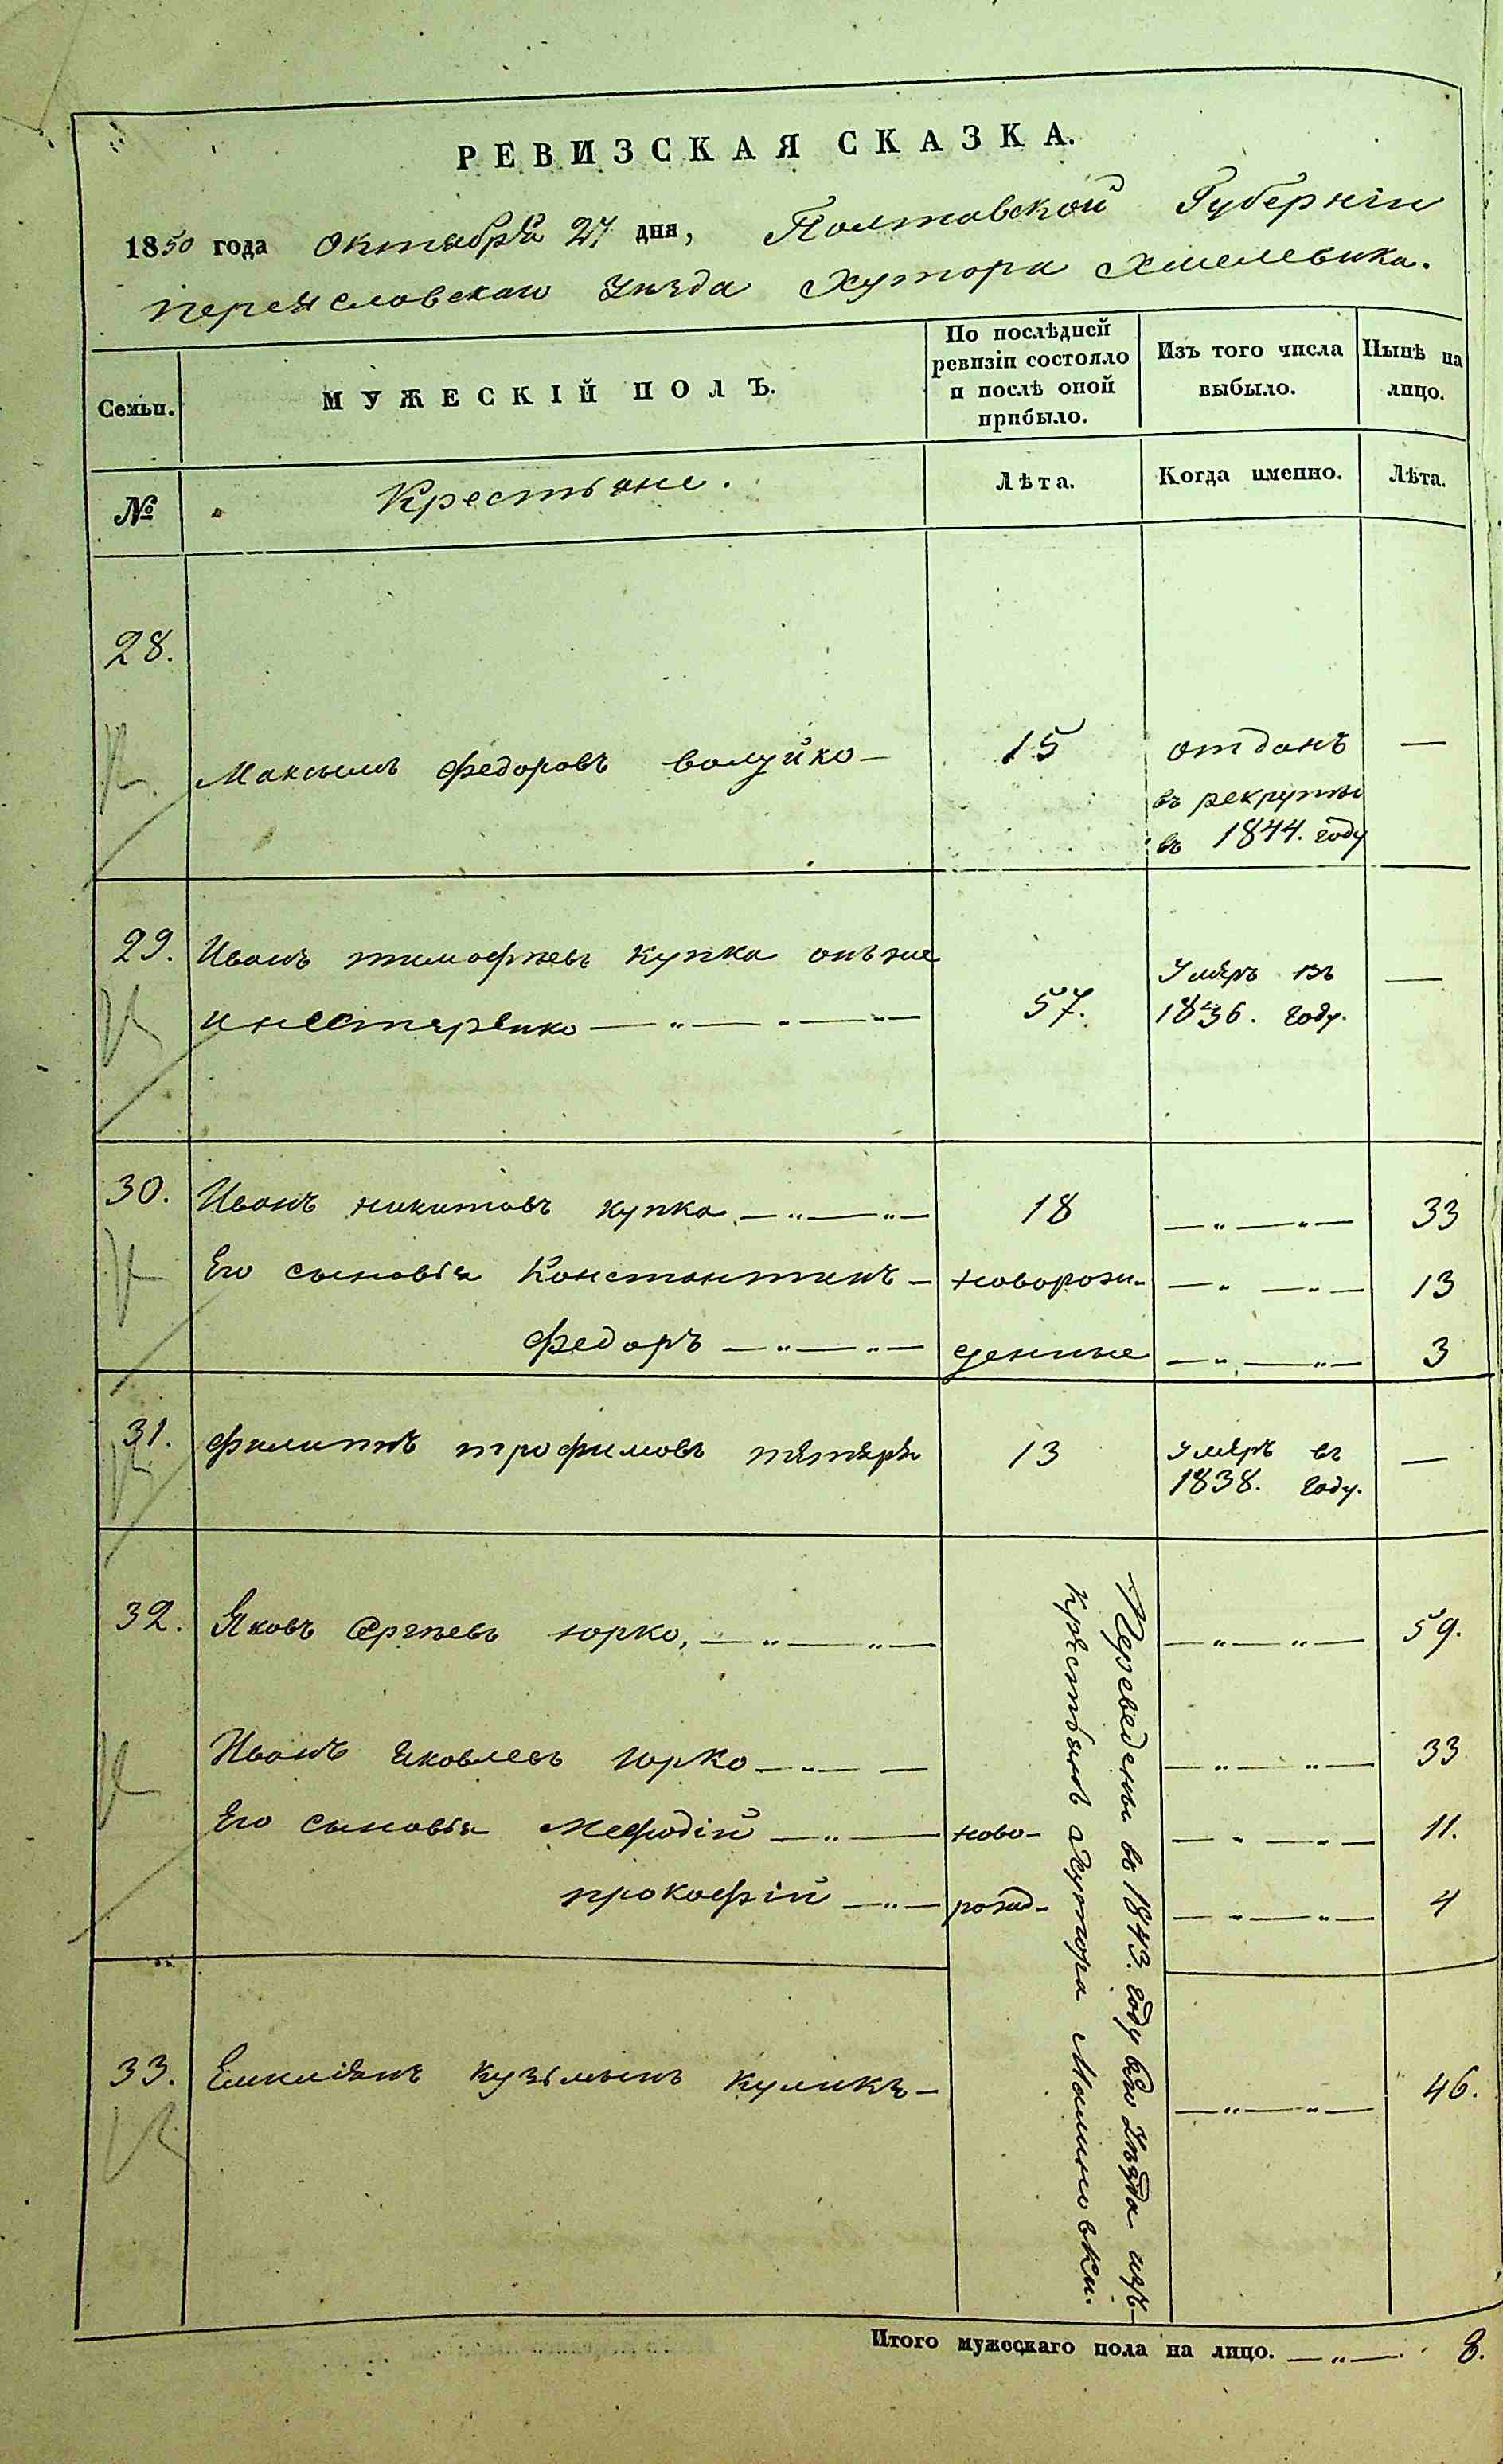 РЕВИЗСКАЯ СКАЗКА.
1850 года Октября 27 дня, Полтавской Губерніи
переяславскаго уѣзда Хутора Хмелевика.
Семьи.
МУЖЕСКІЙ ПОЛЪ.
По послѣдней
ревизіи состояло
и послѣ оной
прибыло.
Изъ того числа
выбыло.
Нынѣ на
лицо.
№
Крестьяне.
Лѣта.
Когда именно.
Лѣта.
28.
Максимъ Федоровъ валуйко — 15 отданъ —
въ рекруты
въ 1844. году
29. Иванъ тимофѣевъ купка онъ же
инестеренко — „ — „ — „ — 57. Умеръ въ —
1836. году.
30. Иванъ никитовъ купка — „ — „ — 18 — „ — „ — 33
Его сыновья Константинъ — новорож- — „ — „ — 13
Федоръ — „ — „ — денные — „ — „ — 3
31. Филиппъ трофимовъ тетеря 13 Умеръ въ —
1838. году.
32. Яковъ Сергѣевъ юрко, — „ — „ — — „ — „ — 59.
Иванъ Яковлевъ Юрко — „ — — — „ — „ — 33
Его сыновья Мефодій — „ — ново- — „ — „ — 11.
прокофій — „ — рожд- — „ — „ — 4
33. Емиліянъ кузьминъ куликъ — — „ — „ — 46.
Переведены въ 1843. году сего уѣзда изъ
крестьянъ хутора Малиновки.
Итого мужескаго пола на лицо. — „ — 8.